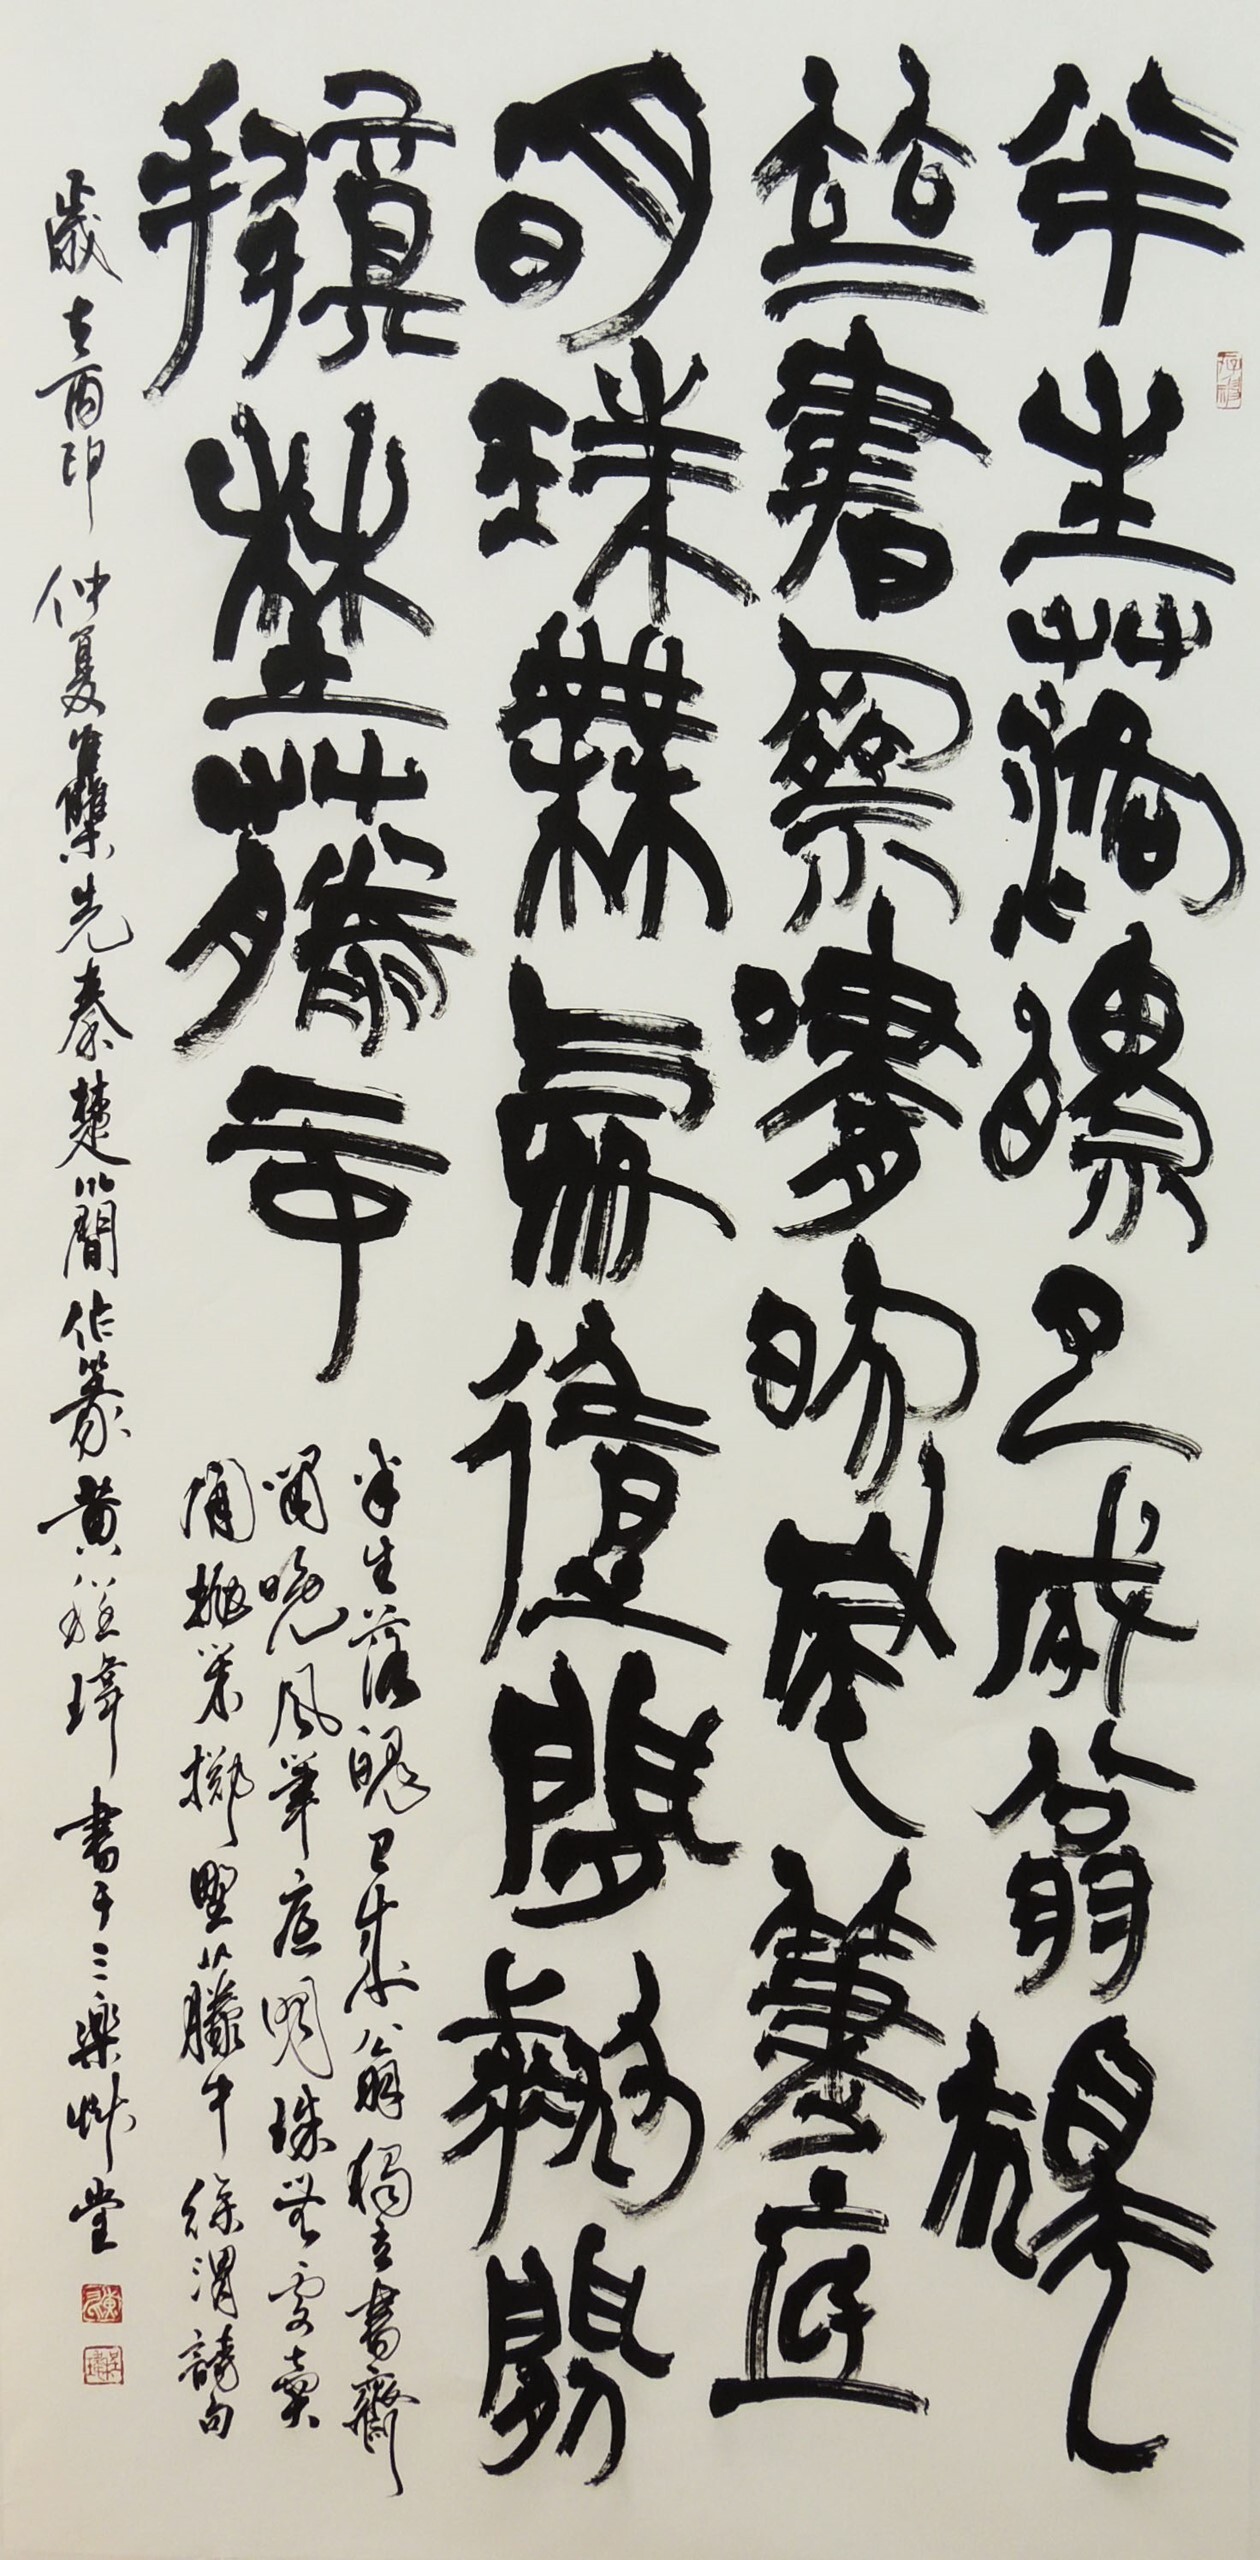 半生落魄已成翁獨
立書齋嘯晚風筆底
明珠無處賣閒拋閒
擲野藤中
半生落魄已成翁獨立書齋
嘯晚風筆底明珠無處賣
閒拋擲野藤中徐渭詩句
歲酉仲夏集先秦楚簡作篆黃瑋書于三樂艸堂